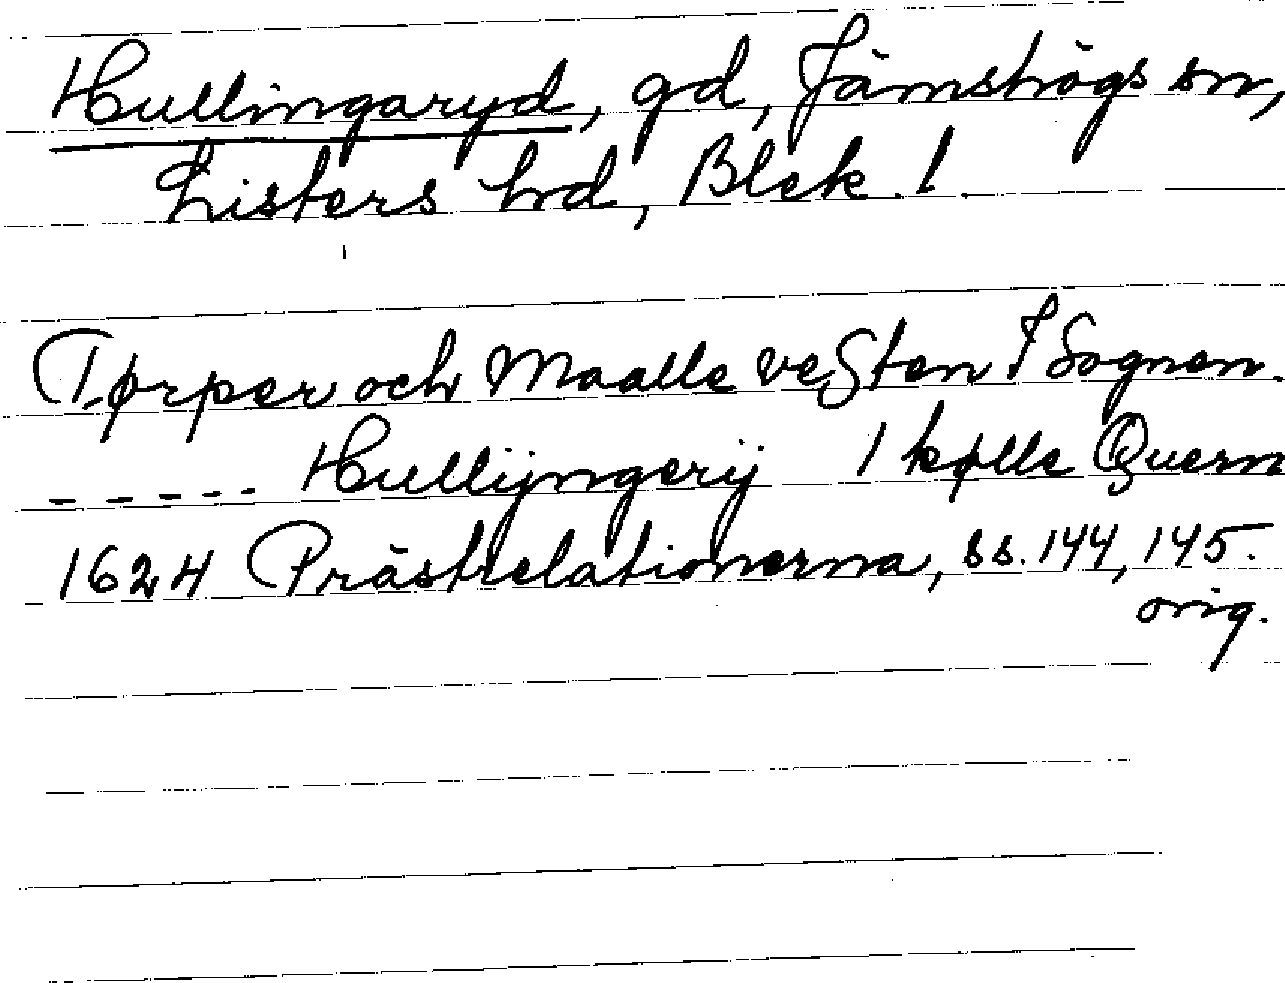 Hullingaryd, gd, Jämshögs sn,
Listers hd, Blek. l.
Tørper och Maalle veSten I Sognen.
- - - - - Hullijngerij 1 kølle Quern
1624 Prästrelationerna, ss. 144, 145.
orig.